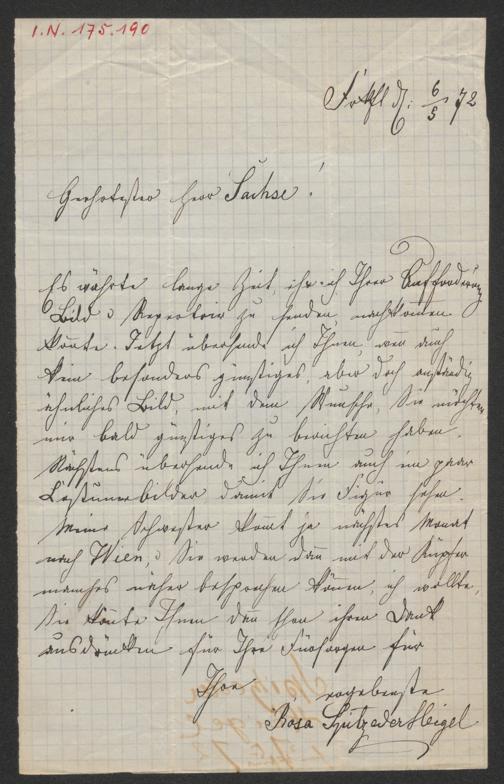 I.N. 175.190
Frkft d. 6/5 72
Geehrtester Herr Sachse!
Es währte lange Zeit, ehe ich Ihrer Aufforderung
Bild u Repertoir zu senden, nachkommen
konnte. Jetzt übersende ich Ihnen, wenn auch
kein besonders günstiges, aber doch anständig
ähnliches Bild, mit dem Wunsche, Sie möchten
mir bald günstiges zu berichten haben.
Nächstens übersende ich Ihnen auch ein paar
Costumebilder damit Sie Figur sehen.
Meine Schwester kommt ja nächstes Monat
nach Wien, u Sie werden dan mit der
manches näher besprechen können, ich wollte,
Sie könnte Ihnen dan schon ihren Dank
ausdrücken für Ihre Fürsorgen für
Ihre ergebenste
Rosa Spitzeder Heigel